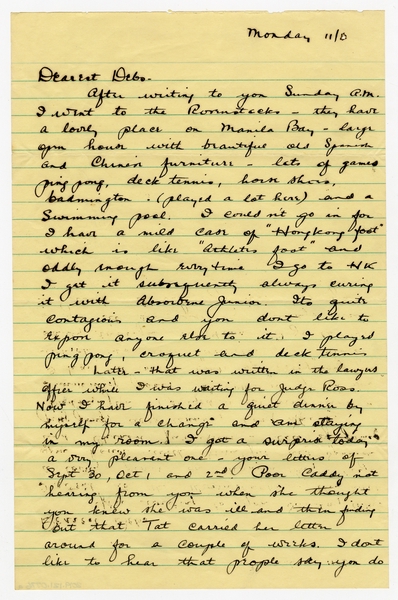 Monday 11/0
Dearest Debs-
After writing to you Sunday A.M.
I went to the - they have
a lovely place on Manila Bay - large
open house with beautiful old Spanish
and Chinese furniture - lots of games
ping pong, deck tennis, horse shoes,
badmington. (played a lot here) and a
Swimming pool. I couldn't go in for
I have a mild case of "Hongkong foot"
which is like "Athletes foot" and
oddly enough everytime I go to HK
I get it subsequently always curing
it with Absorbine Junior. Its quite
contagious and you dont like to
expose anyone else to it. I played
ping pong, croquet and deck tennis
Later - that was written in the lawyers
office while I was waiting for Judge Ross.
Now I have finished a quiet dinner by
myself for a change and am staying
in my room. I got a surprise today
a very pleasant one - your letters of
Sept 30, Oct 1 and 2nd Poor Caddy not
hearing from you when she thought
you knew she was ill and then finding
out that Tat carried her letter
around for a couple of weeks. I dont
like to hear that people say you do